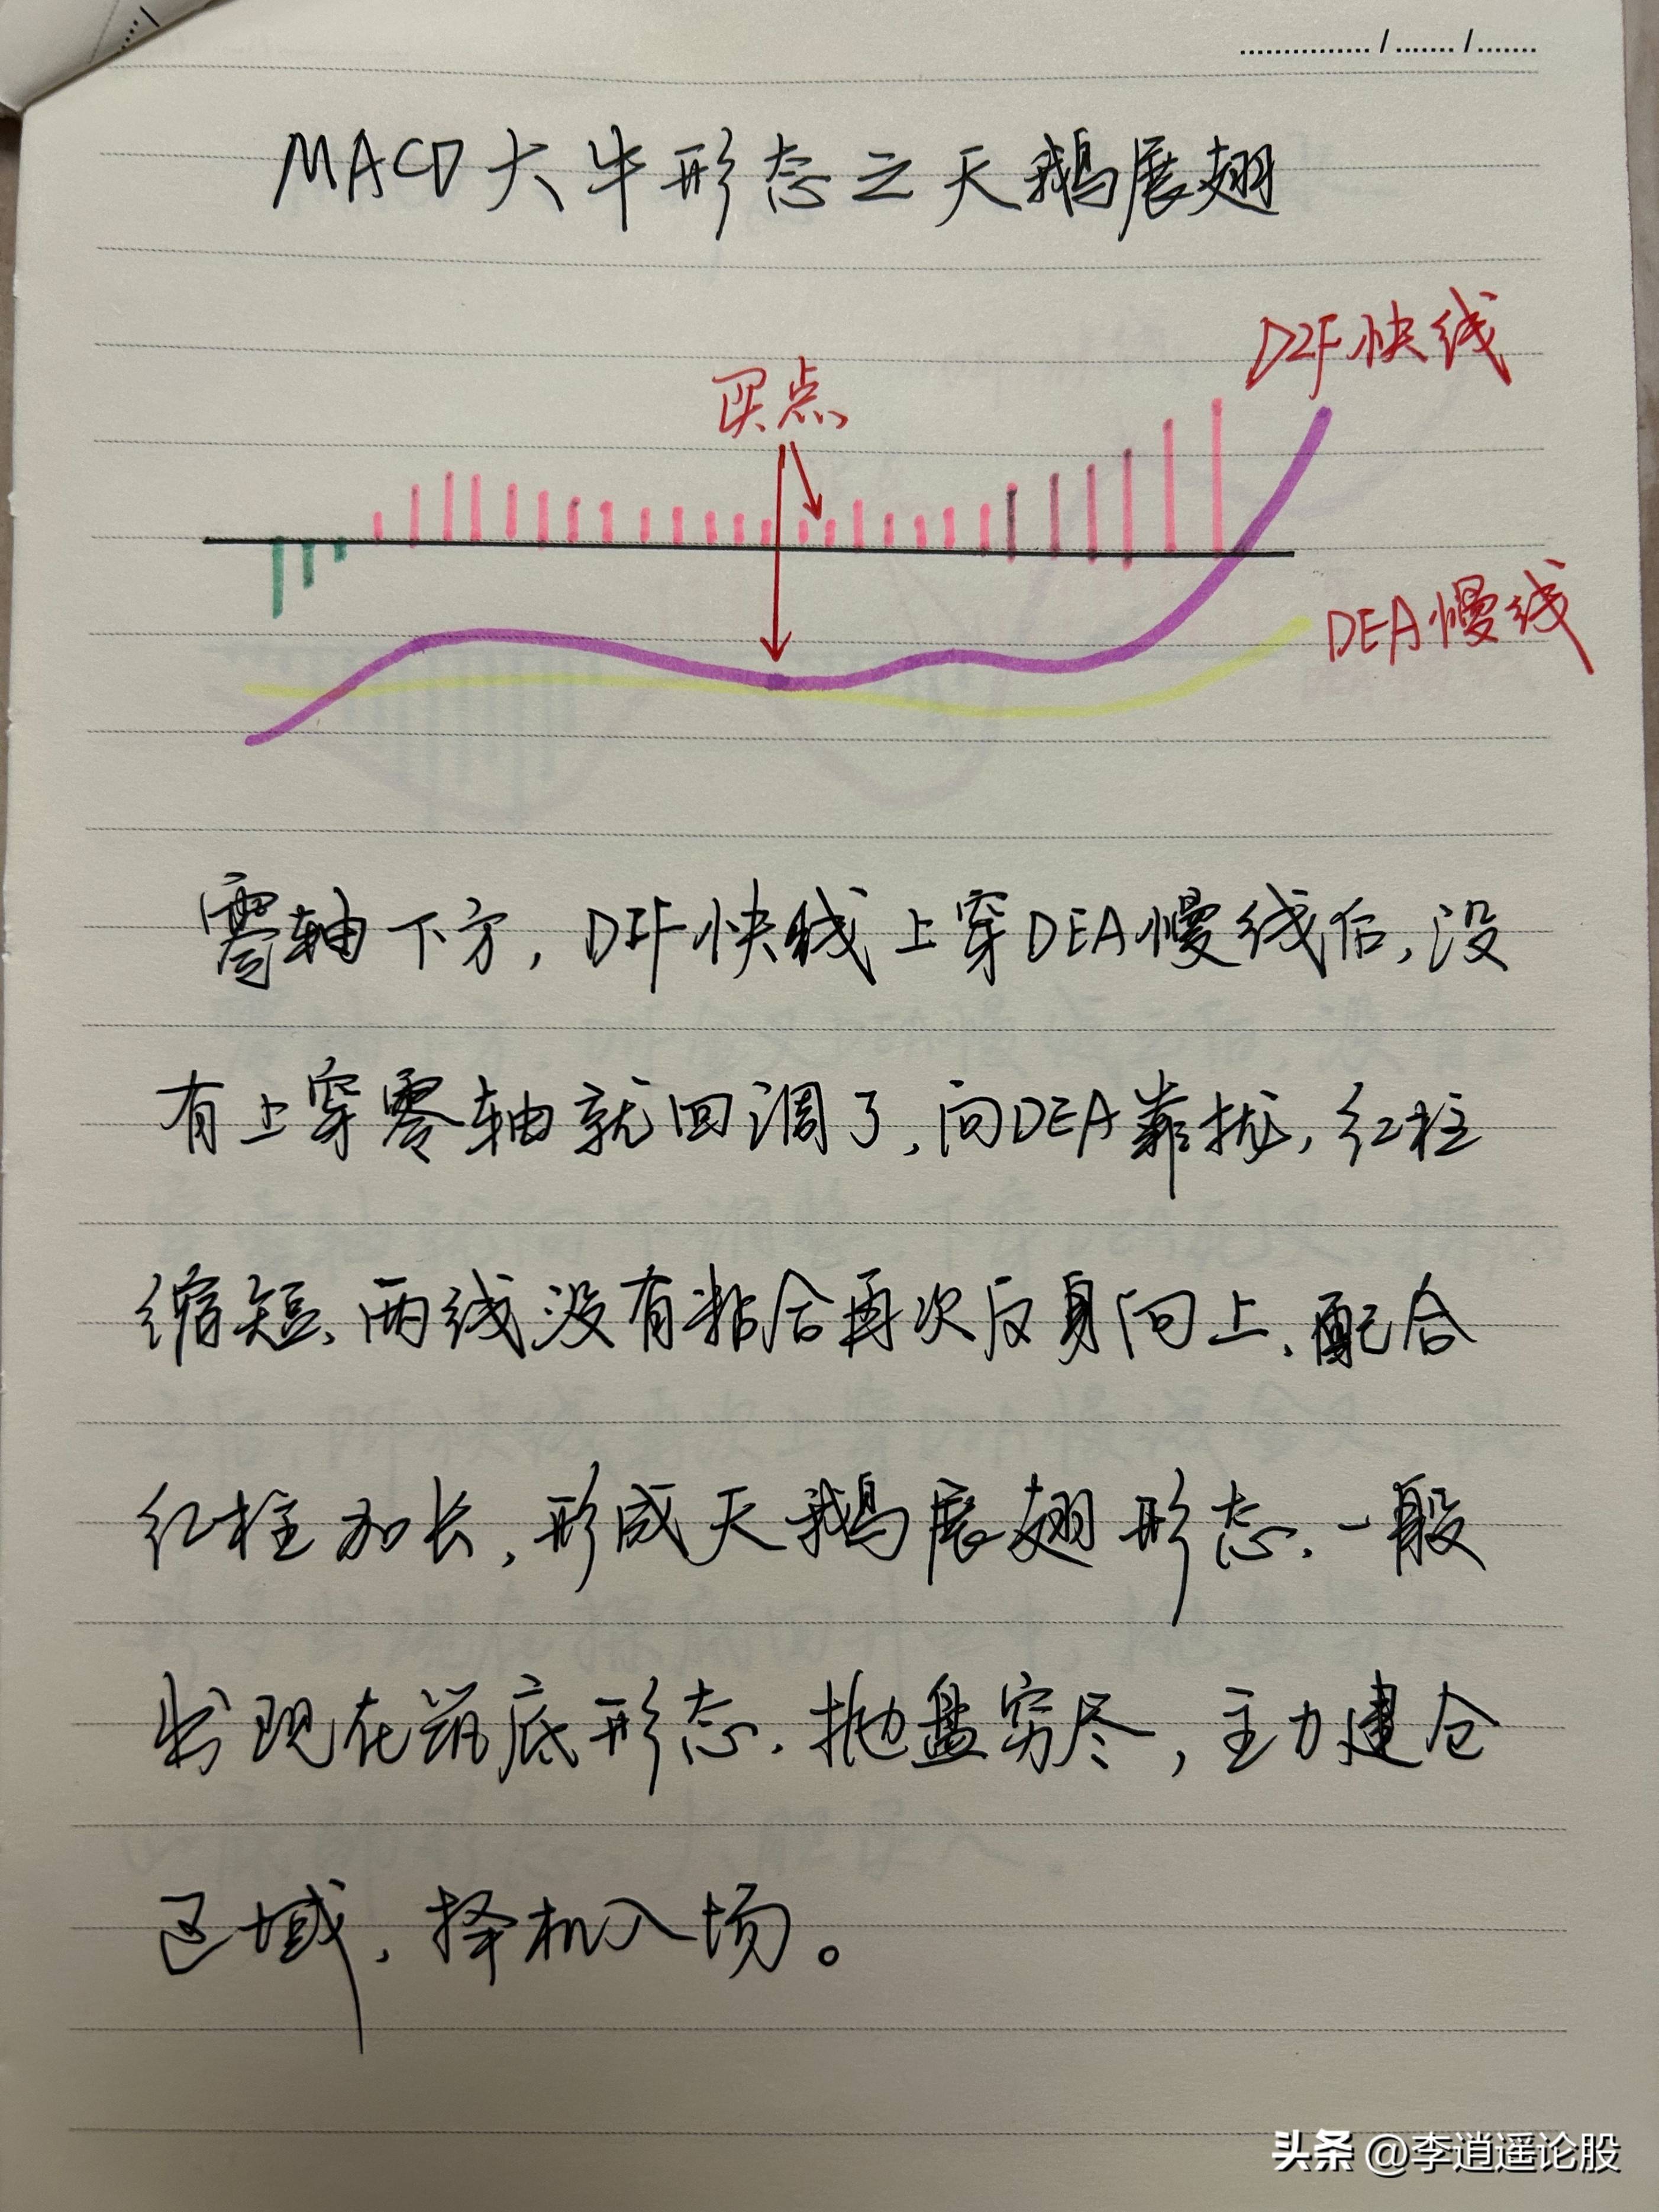 MACD大牛形态之天鹅展翅
DIF快线
买点
DEA慢线
零轴下方，DIF快线上穿DEA慢线后，没
有上穿零轴就回调了，向DEA靠拢，红柱
缩短、两线没有粘合再次反身向上、配合
红柱加长，形成天鹅展翅形态，一般
出现在筑底形态，抛盘穷尽，主力建仓
区域，择机入场。
头条 @李逍遥论股